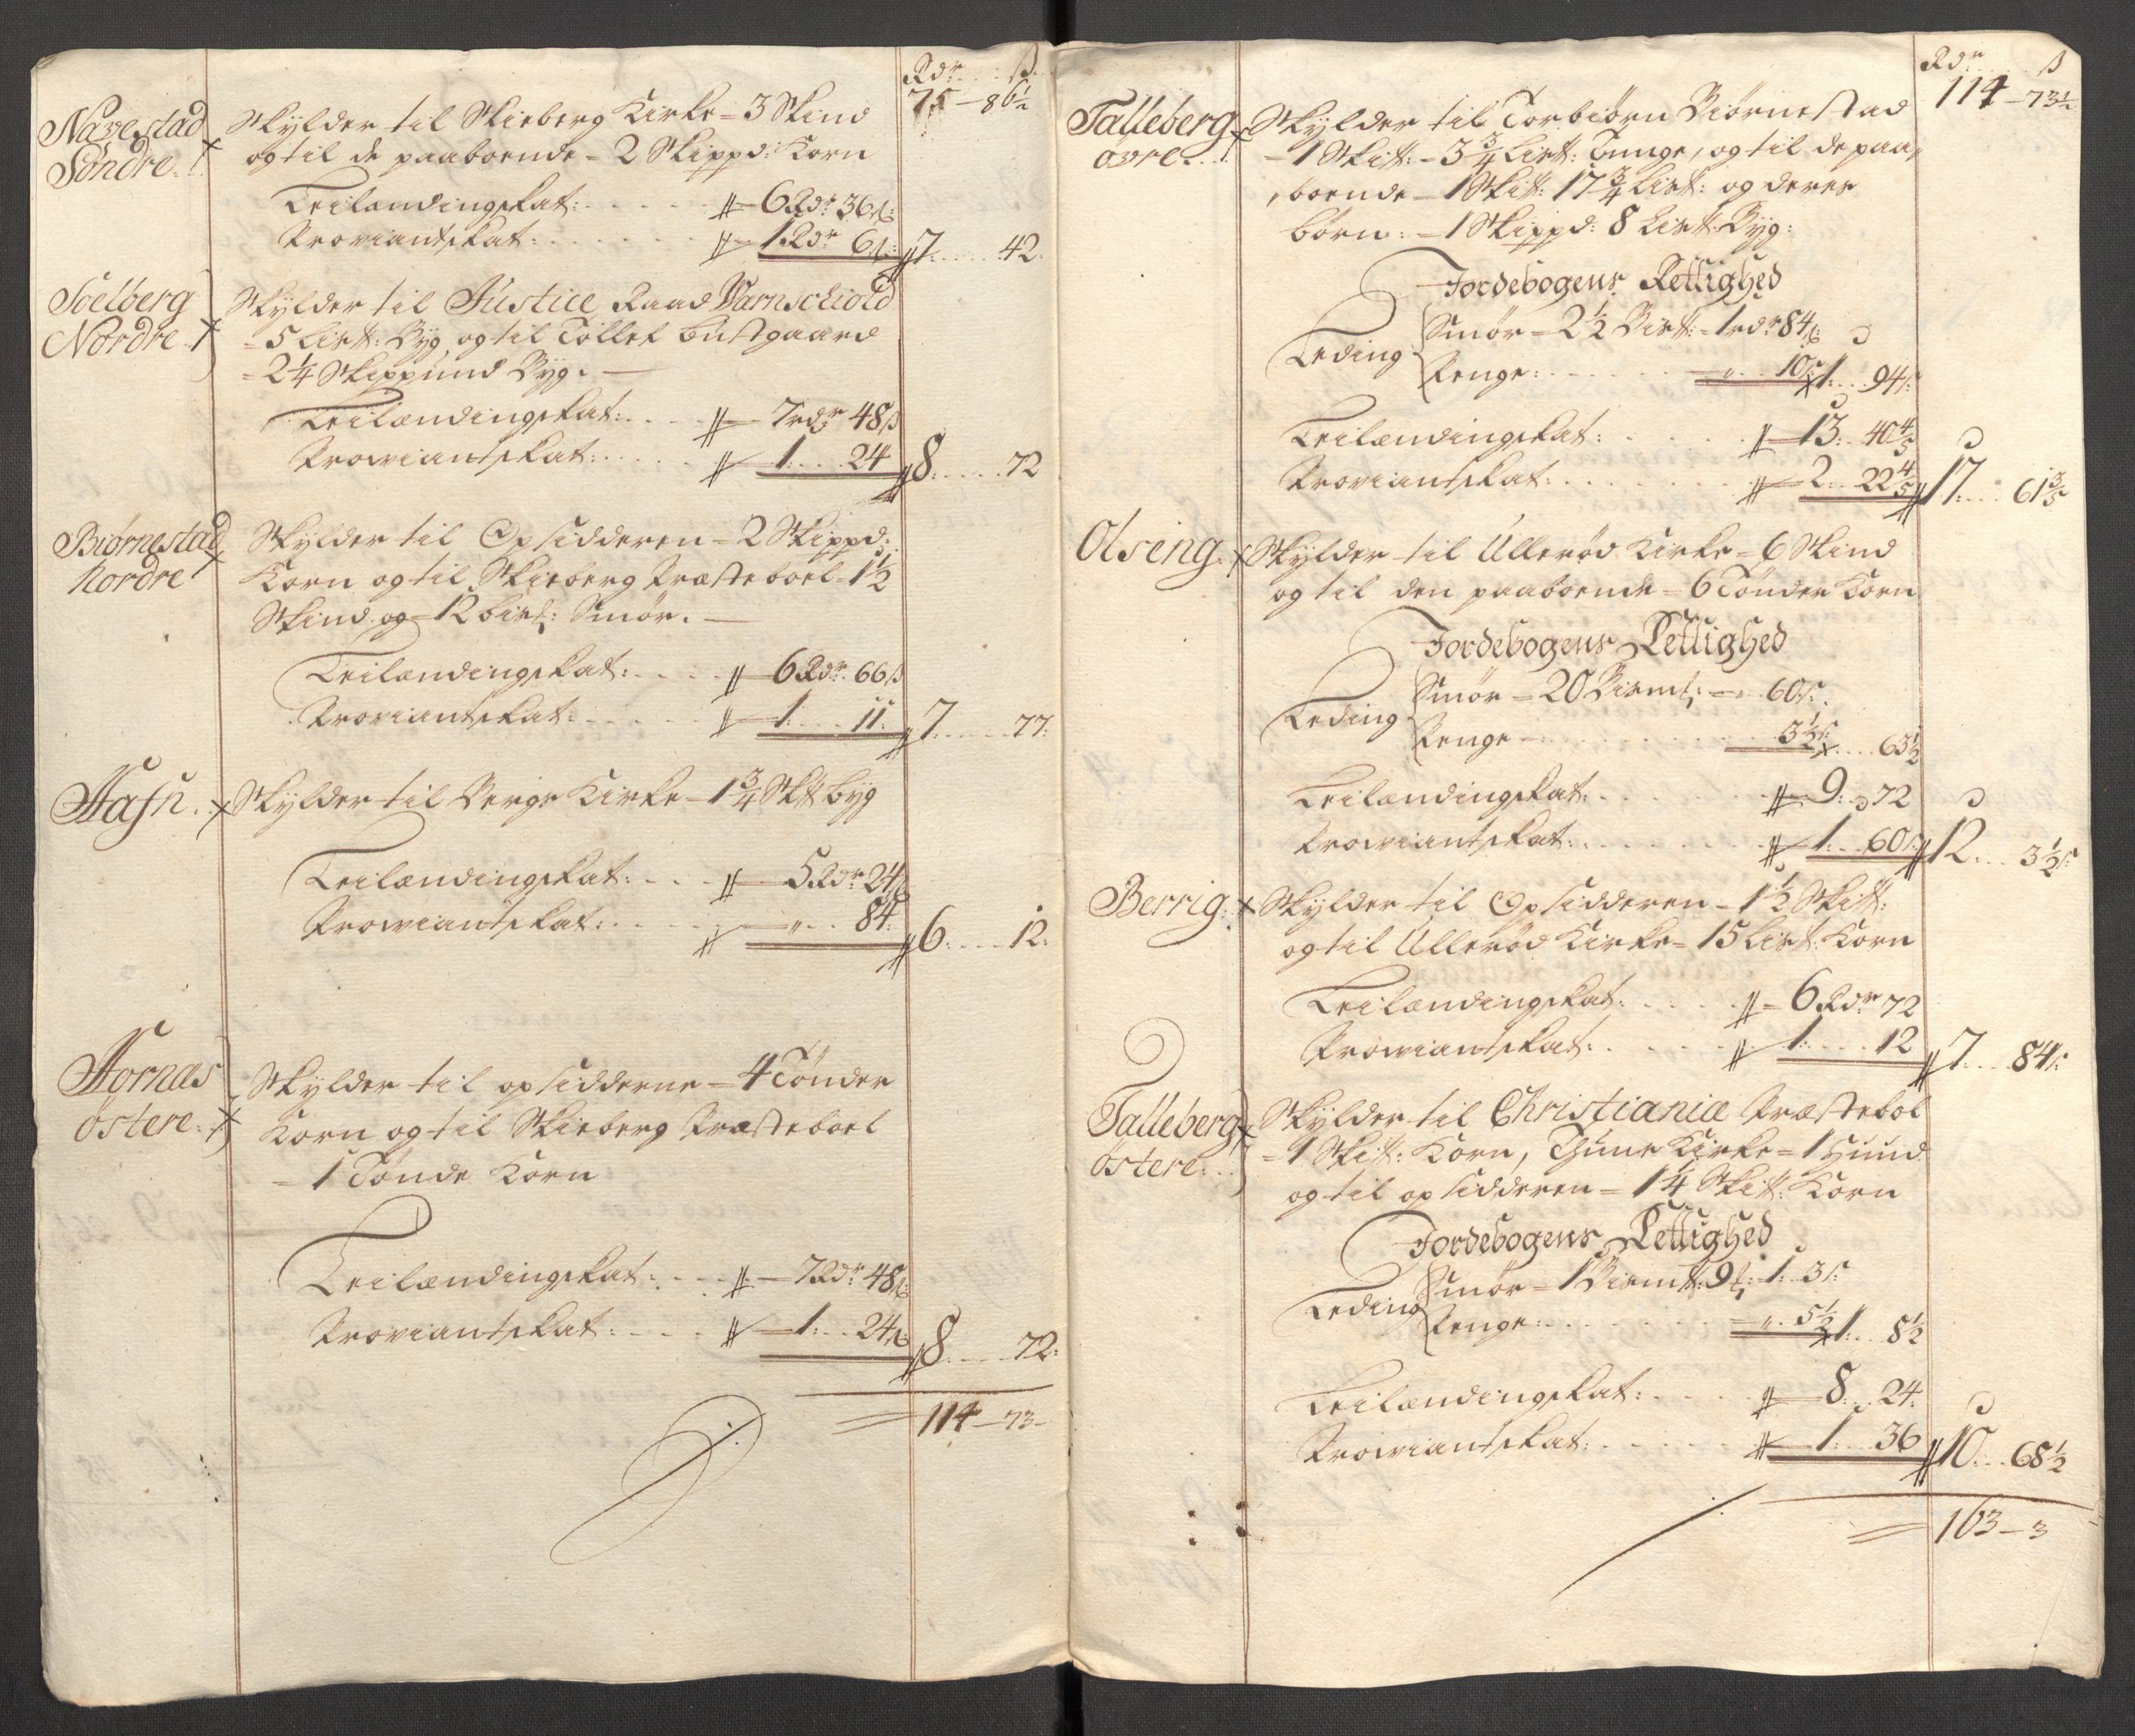 Rdr. ß.
75 – 86½
Navestad Skylder til Skieberg Kirke = 3 Skind
Søndre og til de paaboende = 2 Skippd: Korn
Leilændingskat: 6 Rdr 36 ß:
Proviantskat: 1 Rdr 6 ß: 7 42.
Soelberg Skylder til Justice Raad Varnschiold
Nordre = 5 Lispd: Byg og til Tollef Bustgaard
= 2¼ Skippund Byg. —
Leilændingskat: 7 rdr 48 ß
Proviantskat: 1 24 8 72
Biørnestad Skylder til Opsidderen = 2 Skippd:
Nordre Korn og til Skieberg Præsteboel = 1½
Skind og = 12 Lispd: Smør. —
Leilændingskat: 6 Rdr. 66 ß
Proviantskat: 1 11. 7 77.
Hafn. Skylder til Berge Kirke = 1¾ Skt byg
Leilændingskat: 5 Rdr 24 ß
Proviantskat: „ 84. 6 12.
Hornæs Skylder til opsidderne = 4 Tønder
østere. Korn og til Skieberg Præsteboel
= 1 Tønde Korn
Leilændingskat: 7 Rdr 48 ß
Proviantskat: 1 24 ß 8 72.
114 – 73 –
Rdr ß
114 – 73½
Talleberg Skylder til Torbiørn Biørnestad
øvre = 1 Skit: = 3¾ List: Tunge, og til de paa,
,boende = 1 Skit: 17¾ List: og deres
børn: = 1 Skippd: 8 List: Byg:
Jordebogens Rettighed
Leding Smør = 2½ Bist: = 1 rdr 84 ß
Penge: „ 10 ß 1 94 ß:
Leilændingskat: 13. 40⅘
Proviantskat: 2. 22⅘ 17 61⅗
Olseng. Skylder til Ullerød Kirke = 6 Skind
og til den paaboende = 6 Tønder Korn
Jordebogens Rettighed
Leding Smør = 20 Bismk: „ 60 ß.
Penge 3½ ß 63½
Leilændingskat: 9. 72
Proviantskat: 1. 60 ß 12 3½ ß
Berrig. Skylder til Opsidderen = 1½ Skit:
og til Ullerød Kirke = 15 List: Korn
Leilændingskat: 6 Rdr 72
Proviantskat: 1. 12 7 84 ß
Talleberg Skylder til Christianiæ Præstebol
østere. = 1 Skit: Korn, Thune Kirke = 1 Huud
og til opsidderen = 1¼ Skit: Korn
Jordebogens Rettighed
Leding Smør = 1 Bismk: 9 1. 3 ß:
Penge: „ 5½ 1. 8½
Leilændingskat: 8. 24.
Proviantskat: 1 36 10 68½
163 – 3